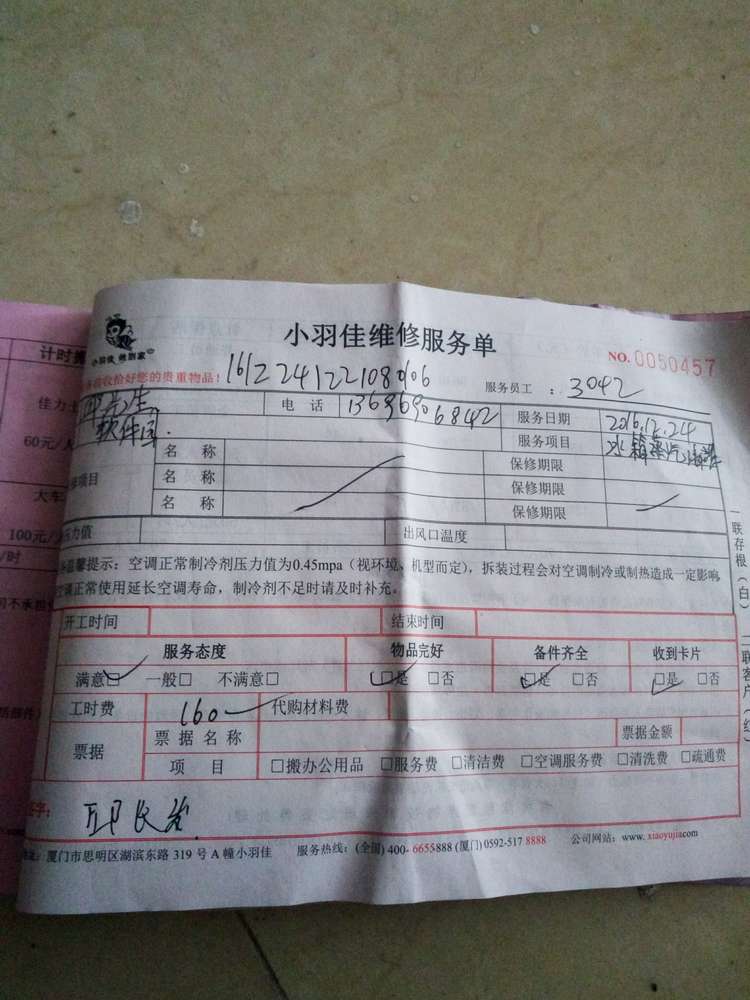 小羽佳维修服务单
小羽佳 他到家
NO. 0050457
收恰好您的贵重物品！ 161224122108006
服务员工 ： 3042
电 话 13696906842 服务日期 2016.12.24
软件园 服务项目
名 称 保修期限
修项目 名 称 保修期限
名 称 保修期限
压力值 出风口温度
温馨提示：空调正常制冷剂压力值为0.45mpa（视环境、机型而定），拆装过程会对空调制冷或制热造成一定影响
空调正常使用延长空调寿命，制冷剂不足时请及时补充。
开工时间 结束时间
服务态度 物品完好 备件齐全 收到卡片
满意□ 一般□ 不满意□ □是 □否 □是 □否 □是 □否
工时费 160 代购材料费
票据 票 据 名 称 票据金额
项 目 □搬办公用品 □服务费 □清洁费 □空调服务费 □清洗费 □疏通费
签字：
地址：厦门市思明区湖滨东路 319 号 A 幢小羽佳 服务热线：(全国) 400- 6655888 (厦门) 0592-517 8888 公司网站：www. xiaoyujia.com
一联存根（白）
二联客户（红）
计时搬
佳力士
60元/人
大车
100元/
/时